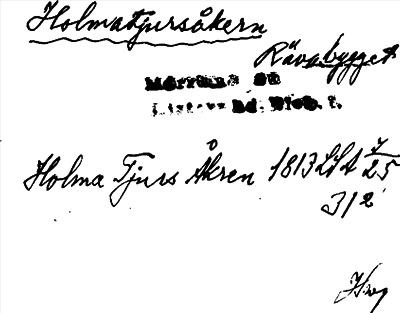 Holmatjursåkern
Rävabygget
Mörrums sn
Listers hd. Blek. l.
Holma Tjurs Åkren 1813 LSA 7/25
312